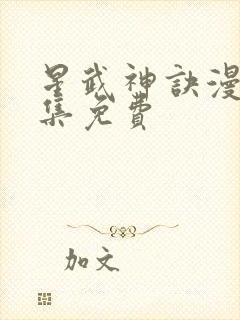 星武神訣漫
集免費
加文